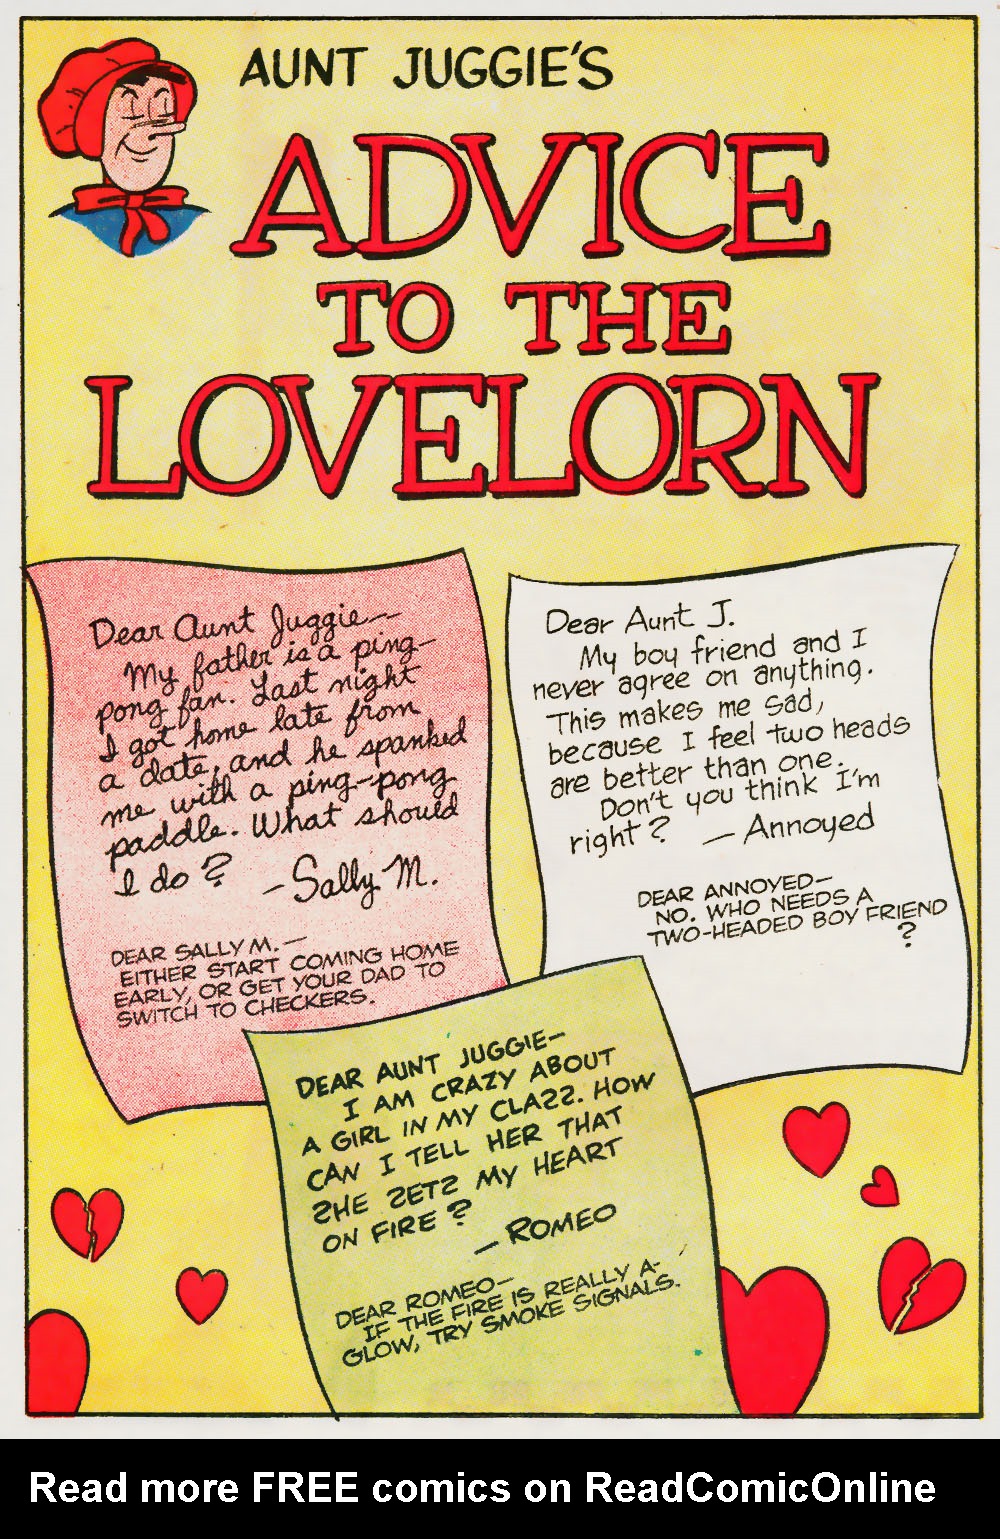 AUNT JUGGIE'S
ADVICE
TO THE
LOVELORN
Dear Aunt Juggie—
My father is a ping-
pong fan. Last night
I got home late from
a date, and he spanked
me with a ping-pong
paddle. What should
I do?
- Sally M.
DEAR SALLY M.—
EITHER START COMING HOME
EARLY, OR GET YOUR DAD TO
SWITCH TO CHECKERS.
Dear Aunt J.
My boy friend and I
never agree on anything.
This makes me sad,
because I feel two heads
are better than one.
Don't you think I'm
right? — Annoyed
DEAR ANNOYED—
NO. WHO NEEDS A
TWO-HEADED BOY FRIEND
?
DEAR AUNT JUGGIE—
I AM CRAZY ABOUT
A GIRL IN MY CLASS. HOW
CAN I TELL HER THAT
SHE SETS MY HEART
ON FIRE?
— ROMEO
DEAR ROMEO—
IF THE FIRE IS REALLY A-
GLOW, TRY SMOKE SIGNALS.
Read more FREE comics on ReadComicOnline